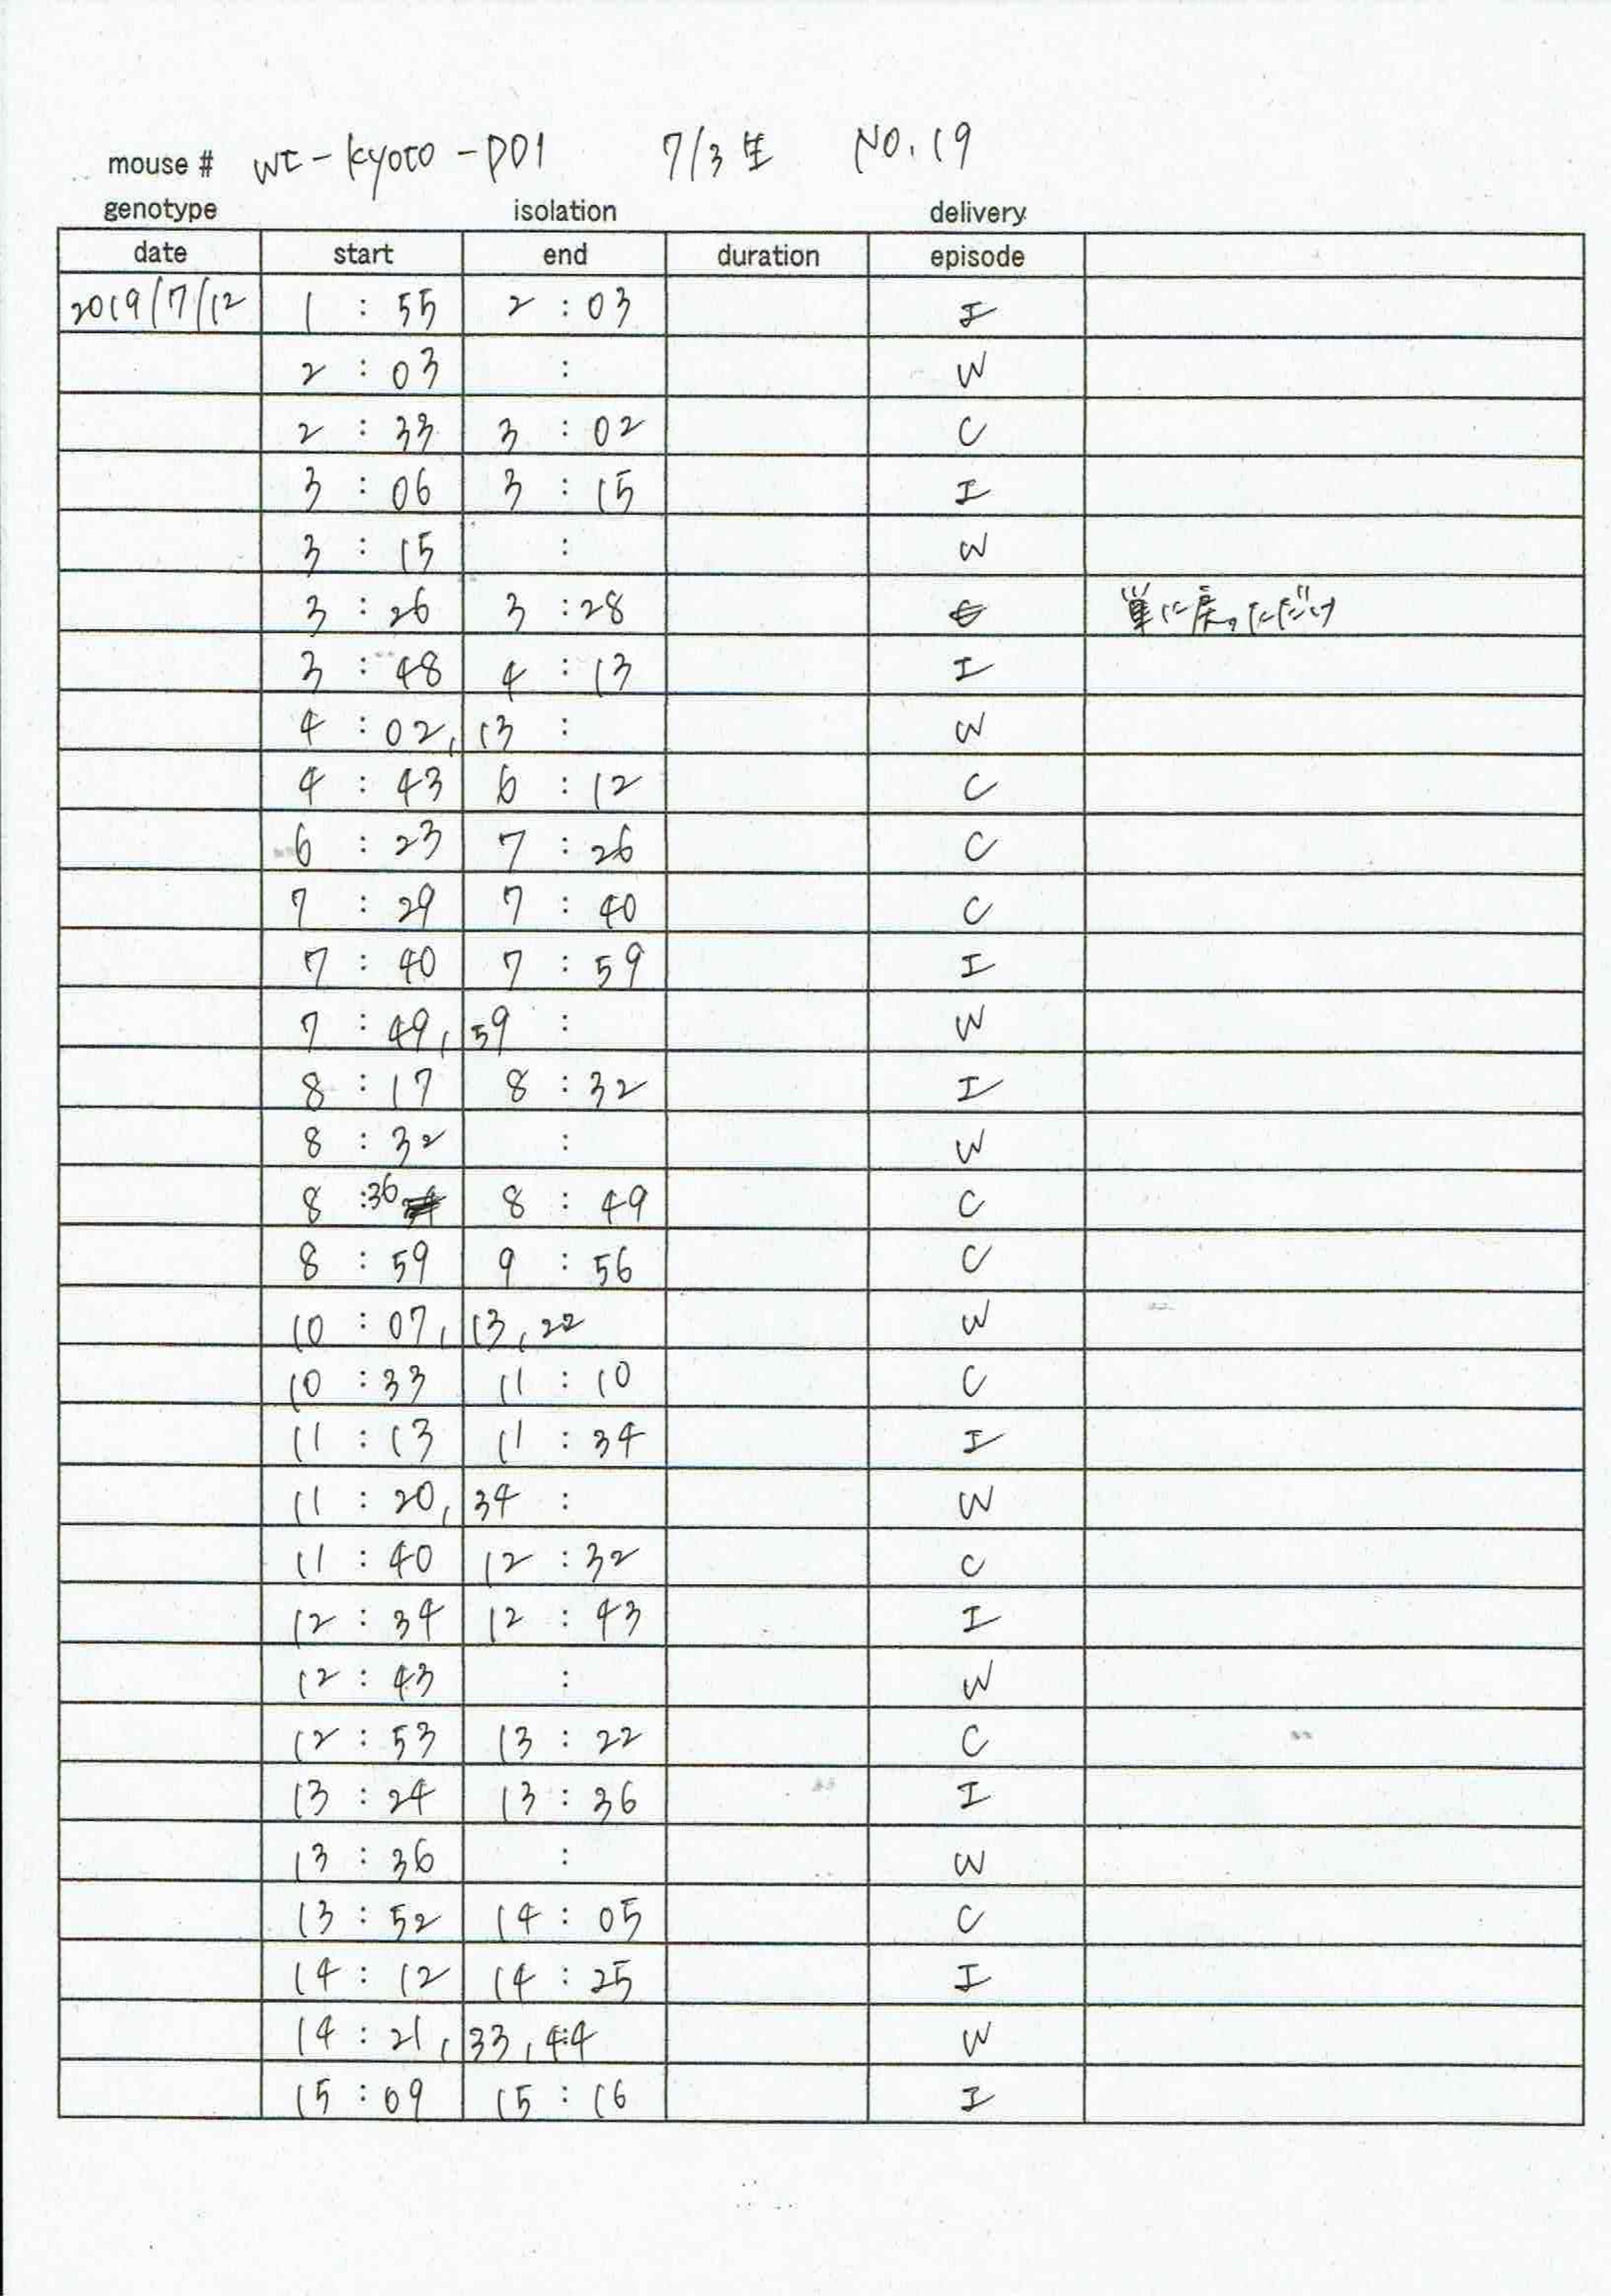 mouse # wt-kyoto-P01 7/3生 NO.19
genotype isolation delivery
date start end duration episode
2019/7/12 1 : 55 2 : 03 I
2 : 03 : W
2 : 33 3 : 02 C
3 : 06 3 : 15 I
3 : 15 : W
3 : 26 3 : 28 巣に戻っただけ
3 : 48 4 : 13 I
4 : 02, 13 : W
4 : 43 6 : 12 C
6 : 23 7 : 26 C
7 : 29 7 : 40 C
7 : 40 7 : 59 I
7 : 49, 59 : W
8 : 17 8 : 32 I
8 : 32 : W
8 : 36 8 : 49 C
8 : 59 9 : 56 C
10 : 07, 13, 22 W
10 : 33 11 : 10 C
11 : 13 11 : 34 I
11 : 20, 34 : W
11 : 40 12 : 32 C
12 : 34 12 : 43 I
12 : 43 : W
12 : 53 13 : 22 C
13 : 24 13 : 36 I
13 : 36 : W
13 : 52 14 : 05 C
14 : 12 14 : 25 I
14 : 21, 33, 44 W
15 : 09 15 : 16 I